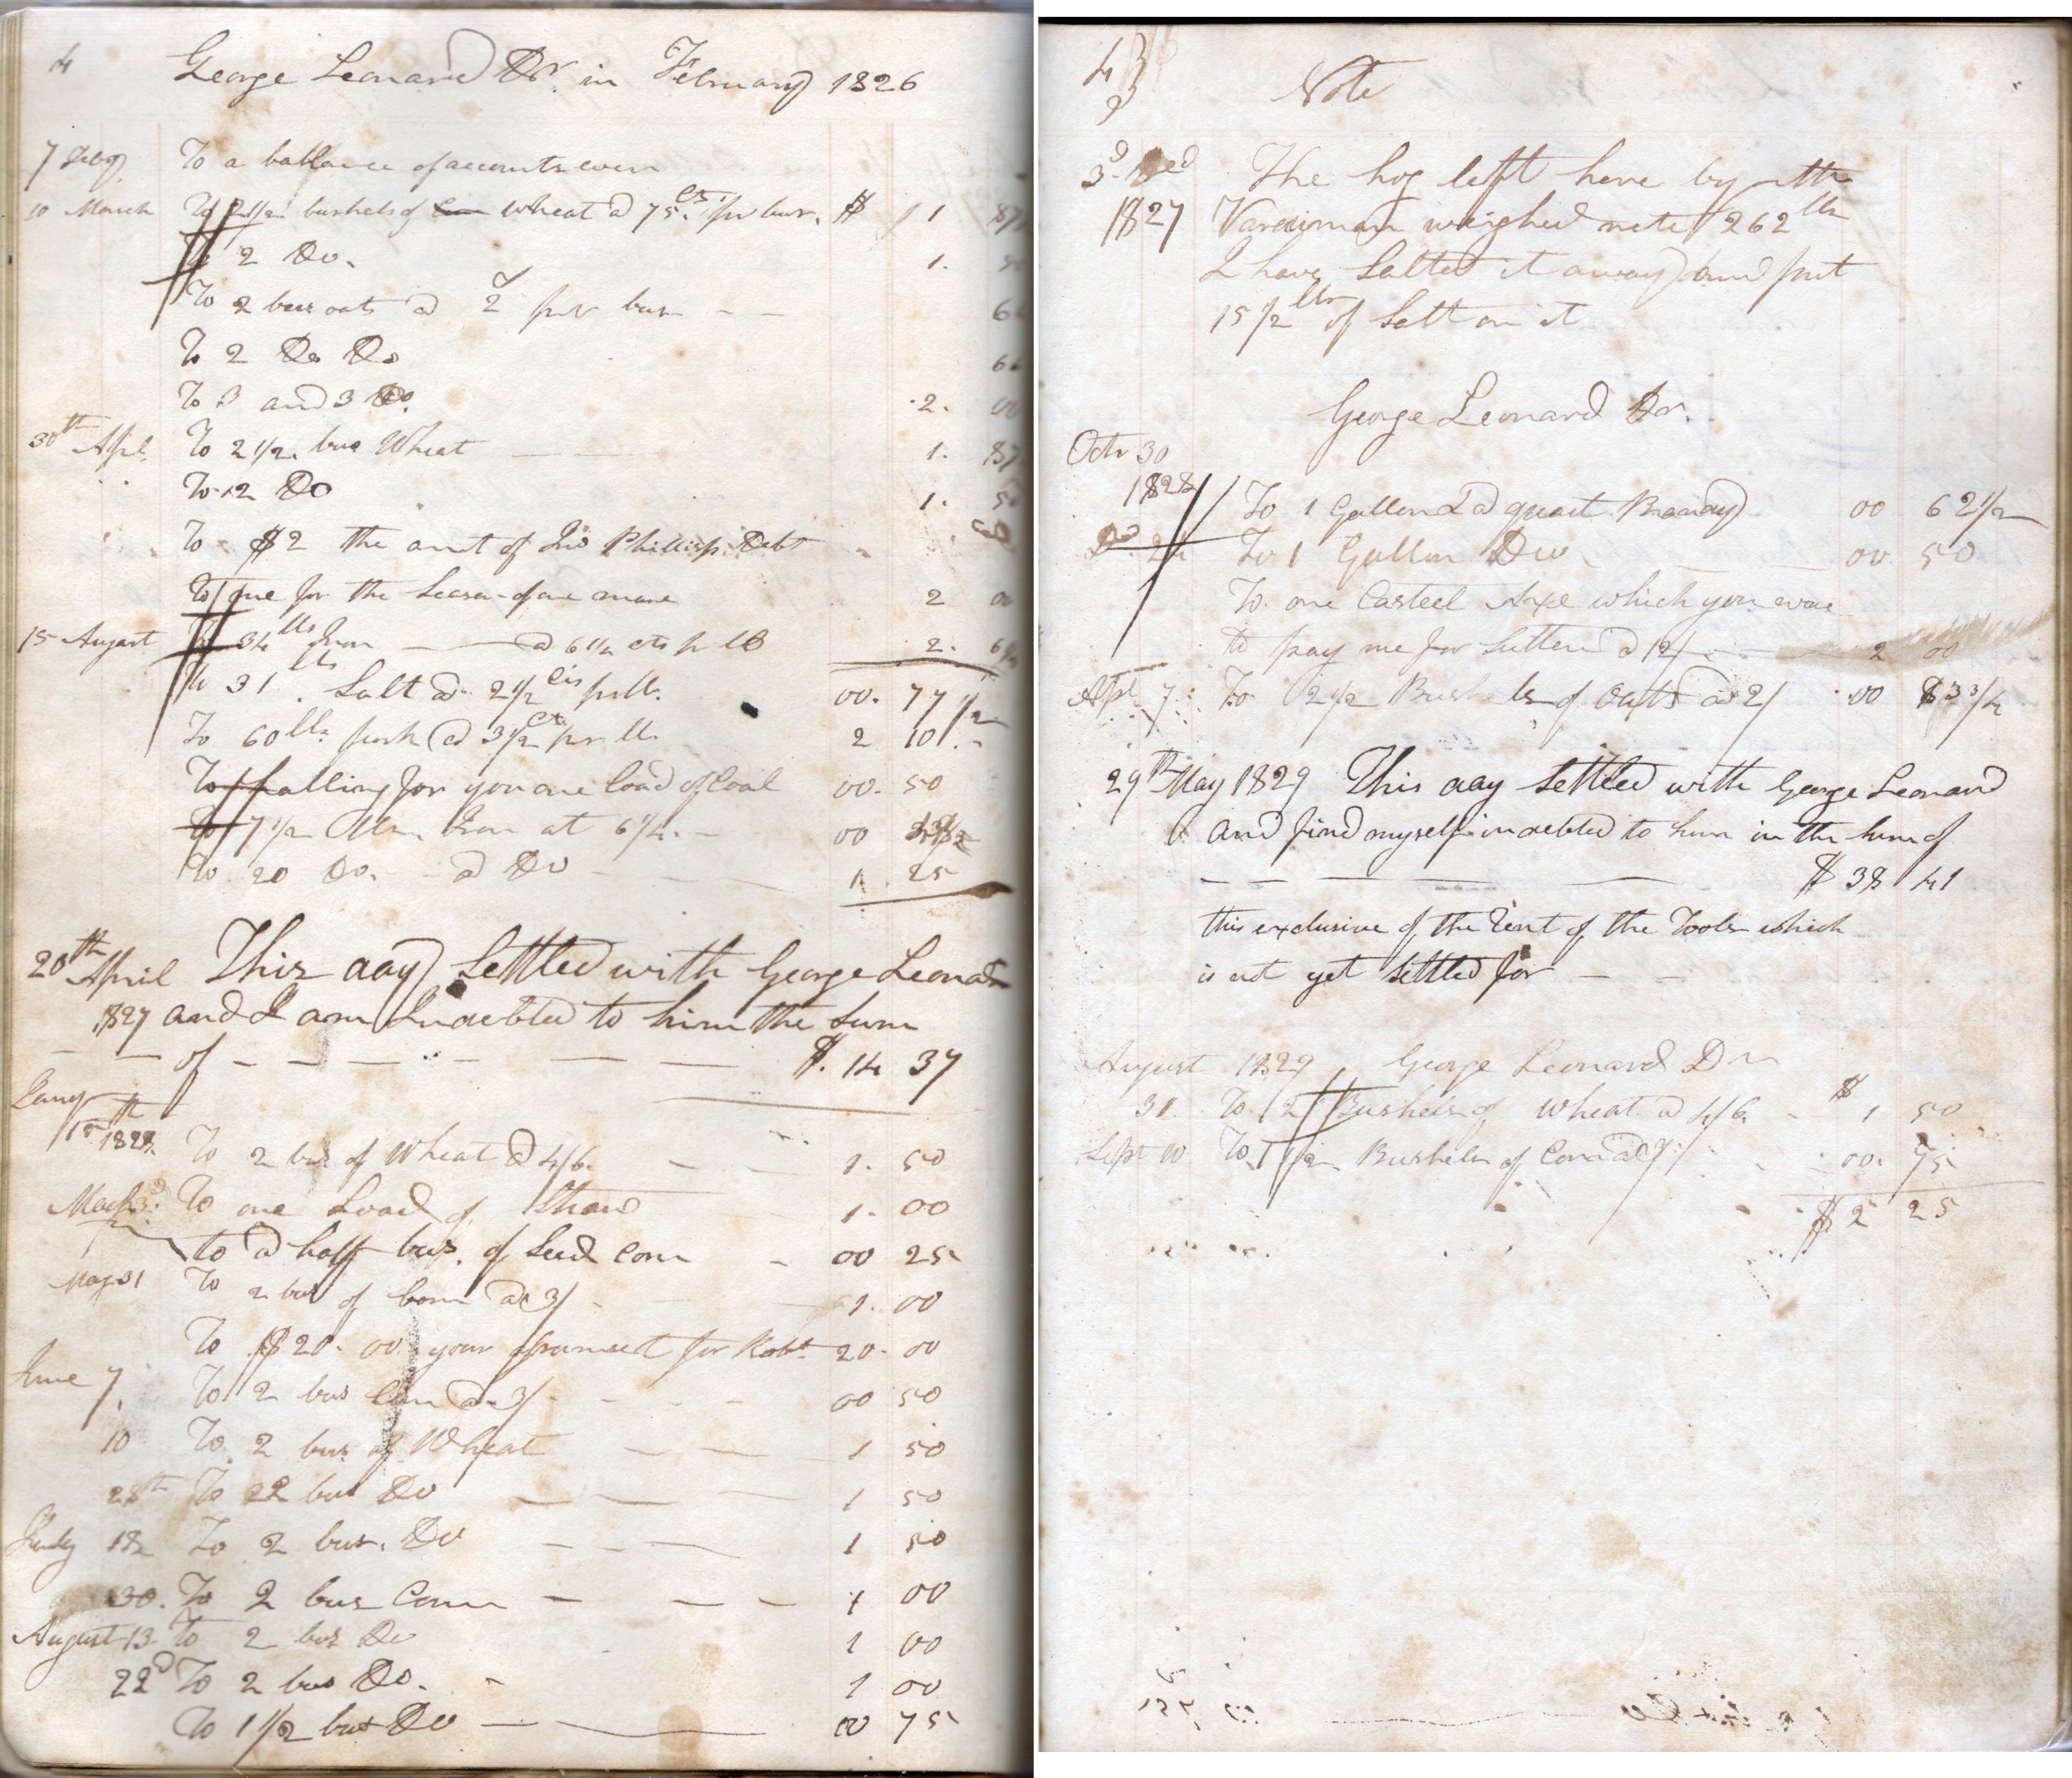 4 George Leonard Dr. in February 1826
7 Feby To a ballance of accounts even
10 March To 2 1/2 bushels of wheat @ 75 cts. pr bus. $ 1 87
To 2 Do. 1. 50
To 2 bus oats @ 2/ per bus 66
To 2 Do Do 66
To 3 and 3 Do. 2. 00
30th Apl. To 2 1/2 bus Wheat 1. 87
To 2 Do 1. 50
To $2 the amt of Jno Phillips Debt
To me for the Season of one mare 2 00
15 August To 34 lbs Iron @ 6 1/4 cts pr lb 2.
To 31 lbs. Salt @ 2 1/2 cts pr lb. 00. 77 1/2
To 60 lbs pork @ 3 1/2 cts pr lb. 2 10
To halling for you one load of Coal 00. 50
To 7 1/2 lbs Iron at 6 1/4. 00
To 20 Do. @ Do 1. 25
20th April This day Settled with George Leonard
1827 and I am Indebted to him the Sum
of $. 14 37
Jany
15th 1828. To 2 bus of Wheat @ 4/6. 1. 50
March 3d To one Load of Straw 1. 00
to a half bus. of Seed Corn 00 25
May 31 To 2 bus of Corn @ 3/ 1. 00
To $20. 00 your for Robt. 20. 00
June 7. To 2 bus Corn @ 3/ 00 50
10 To 2 bus of Wheat 1 50
28th To 2 bus Do 1 50
July 18 To 2 bus. Do 1 50
30. To 2 bus Corn 1 00
August 13. To 2 bus Do 1 00
22d To 2 bus Do. 1 00
To 1 1/2 bus Do 00 75
43 Note
3d Decd The hog left here by
1827 Vardiman weighed nete 262 lbs
I have Salted it away and put
15 1/2 lbs of Salt on it
George Leonard Dr.
Octr 30
1828 To 1 Gallon & a quart Brandy 00 62 1/2
Do 24 To 1 Gallon Do 00 50
To one Casteel Axe which you ware
to pay me for Sutten @ 12/ 2 00
Apl 7. To 2 1/2 Bushels of Oats @ 2/ .00 83 3/4
29th May 1829 This day Settled with George Leonard
and find myself indebted to him in the sum of
$ 38 41
this exclusive of the Rent of the Tools which
is not yet Settled for
August 1829 George Leonard Dr
31 To 2 Bushels of Wheat @ 4/6. $ 1 50
Sept 10 To 1 1/2 Bushels of Corn @ 3/ 00. 75
$ 2 25